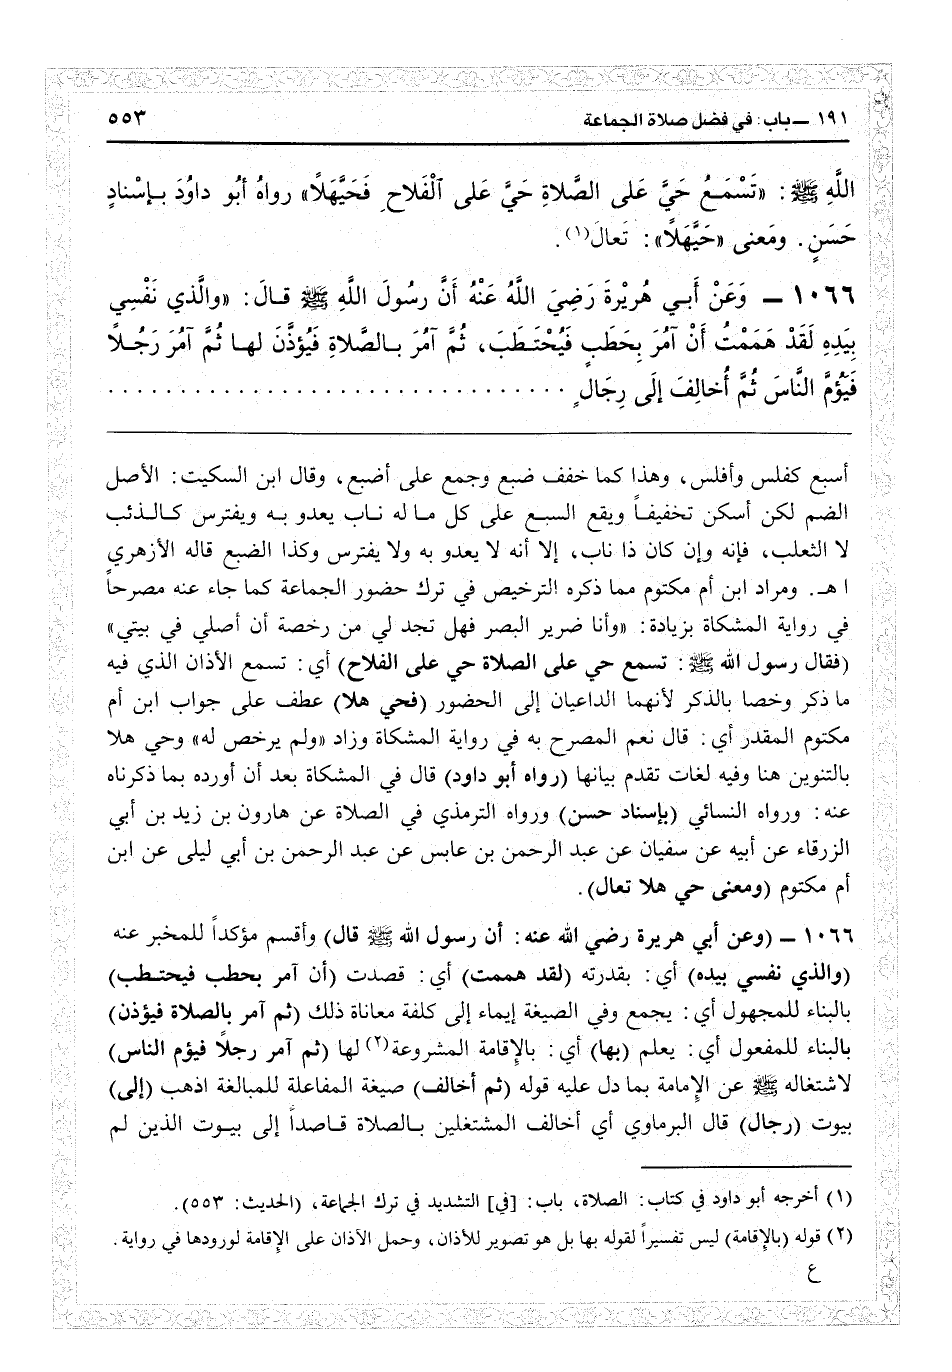 ١٩١ ــ باب: في فضل صلاة الجماعة ٥٥٣
اللَّهِ ﷺ: «تَسْمَعُ حَيَّ عَلى الصَّلاةِ حَيَّ عَلى الْفَلاحِ فَحَيَّهَلاً» رواهُ أبُو داوُدَ بإسْنادٍ
حَسَنٍ. ومَعنى «حَيَّهَلاً»: تَعالَ(١).
١٠٦٦ ــ وَعَنْ أَبي هُرَيْرةَ رَضِيَ اللَّهُ عَنْهُ أَنَّ رسُولَ اللَّهِ ﷺ قالَ: «والَّذي نَفْسِي
بِيَدِهِ لَقَدْ هَمَمْتُ أَنْ آمُرَ بِحَطَبٍ فَيُحْتَطَبَ، ثُمَّ آمُرَ بالصَّلاةِ فَيُؤذَّنَ لها ثُمَّ آمُرَ رَجُلاً
فَيَؤُمَّ النَّاسَ ثُمَّ أُخالِفَ إلَى رِجَالٍ . . . . . . . . . . . . . . . . . . . . . . . . . . . . . .
أسبع كفلس وأفلس، وهذا كما خفف ضبع وجمع على أضبع، وقال ابن السكيت: الأصل
الضم لكن أسكن تخفيفاً ويقع السبع على كل ما له ناب يعدو به ويفترس كالذئب
لا الثعلب، فإنه وإن كان ذا ناب، إلا أنه لا يعدو به ولا يفترس وكذا الضبع قاله الأزهري
ا هـ. ومراد ابن أم مكتوم مما ذكره الترخيص في ترك حضور الجماعة كما جاء عنه مصرحاً
في رواية المشكاة بزيادة: «وأنا ضرير البصر فهل تجد لي من رخصة أن أصلي في بيتي»
(فقال رسول الله ﷺ: تسمع حي على الصلاة حي على الفلاح) أي: تسمع الأذان الذي فيه
ما ذكر وخصا بالذكر لأنهما الداعيان إلى الحضور (فحي هلا) عطف على جواب ابن أم
مكتوم المقدر أي: قال نعم المصرح به في رواية المشكاة وزاد «ولم يرخص له» وحي هلا
بالتنوين هنا وفيه لغات تقدم بيانها (رواه أبو داود) قال في المشكاة بعد أن أورده بما ذكرناه
عنه: ورواه النسائي (بإسناد حسن) ورواه الترمذي في الصلاة عن هارون بن زيد بن أبي
الزرقاء عن أبيه عن سفيان عن عبد الرحمن بن عابس عن عبد الرحمن بن أبي ليلى عن ابن
أم مكتوم (ومعنى حي هلا تعال).
١٠٦٦ ــ (وعن أبي هريرة رضي الله عنه: أن رسول الله ﷺ قال) وأقسم مؤكداً للمخبر عنه
(والذي نفسي بيده) أي: بقدرته (لقد هممت) أي: قصدت (أن آمر بحطب فيحتطب)
بالبناء للمجهول أي: يجمع وفي الصيغة إيماء إلى كلفة معاناة ذلك (ثم آمر بالصلاة فيؤذن)
بالبناء للمفعول أي: يعلم (بها) أي: بالإقامة المشروعة(٢) لها (ثم آمر رجلاً فيؤم الناس)
لاشتغاله ﷺ عن الإمامة بما دل عليه قوله (ثم أخالف) صيغة المفاعلة للمبالغة اذهب (إلى)
بيوت (رجال) قال البرماوي أي أخالف المشتغلين بالصلاة قاصداً إلى بيوت الذين لم
(١) أخرجه أبو داود في كتاب: الصلاة، باب: [في] التشديد في ترك الجماعة، (الحديث: ٥٥٣).
(٢) قوله (بالإقامة) ليس تفسيراً لقوله بها بل هو تصوير للأذان، وحمل الأذان على الإقامة لورودها في رواية.
ع